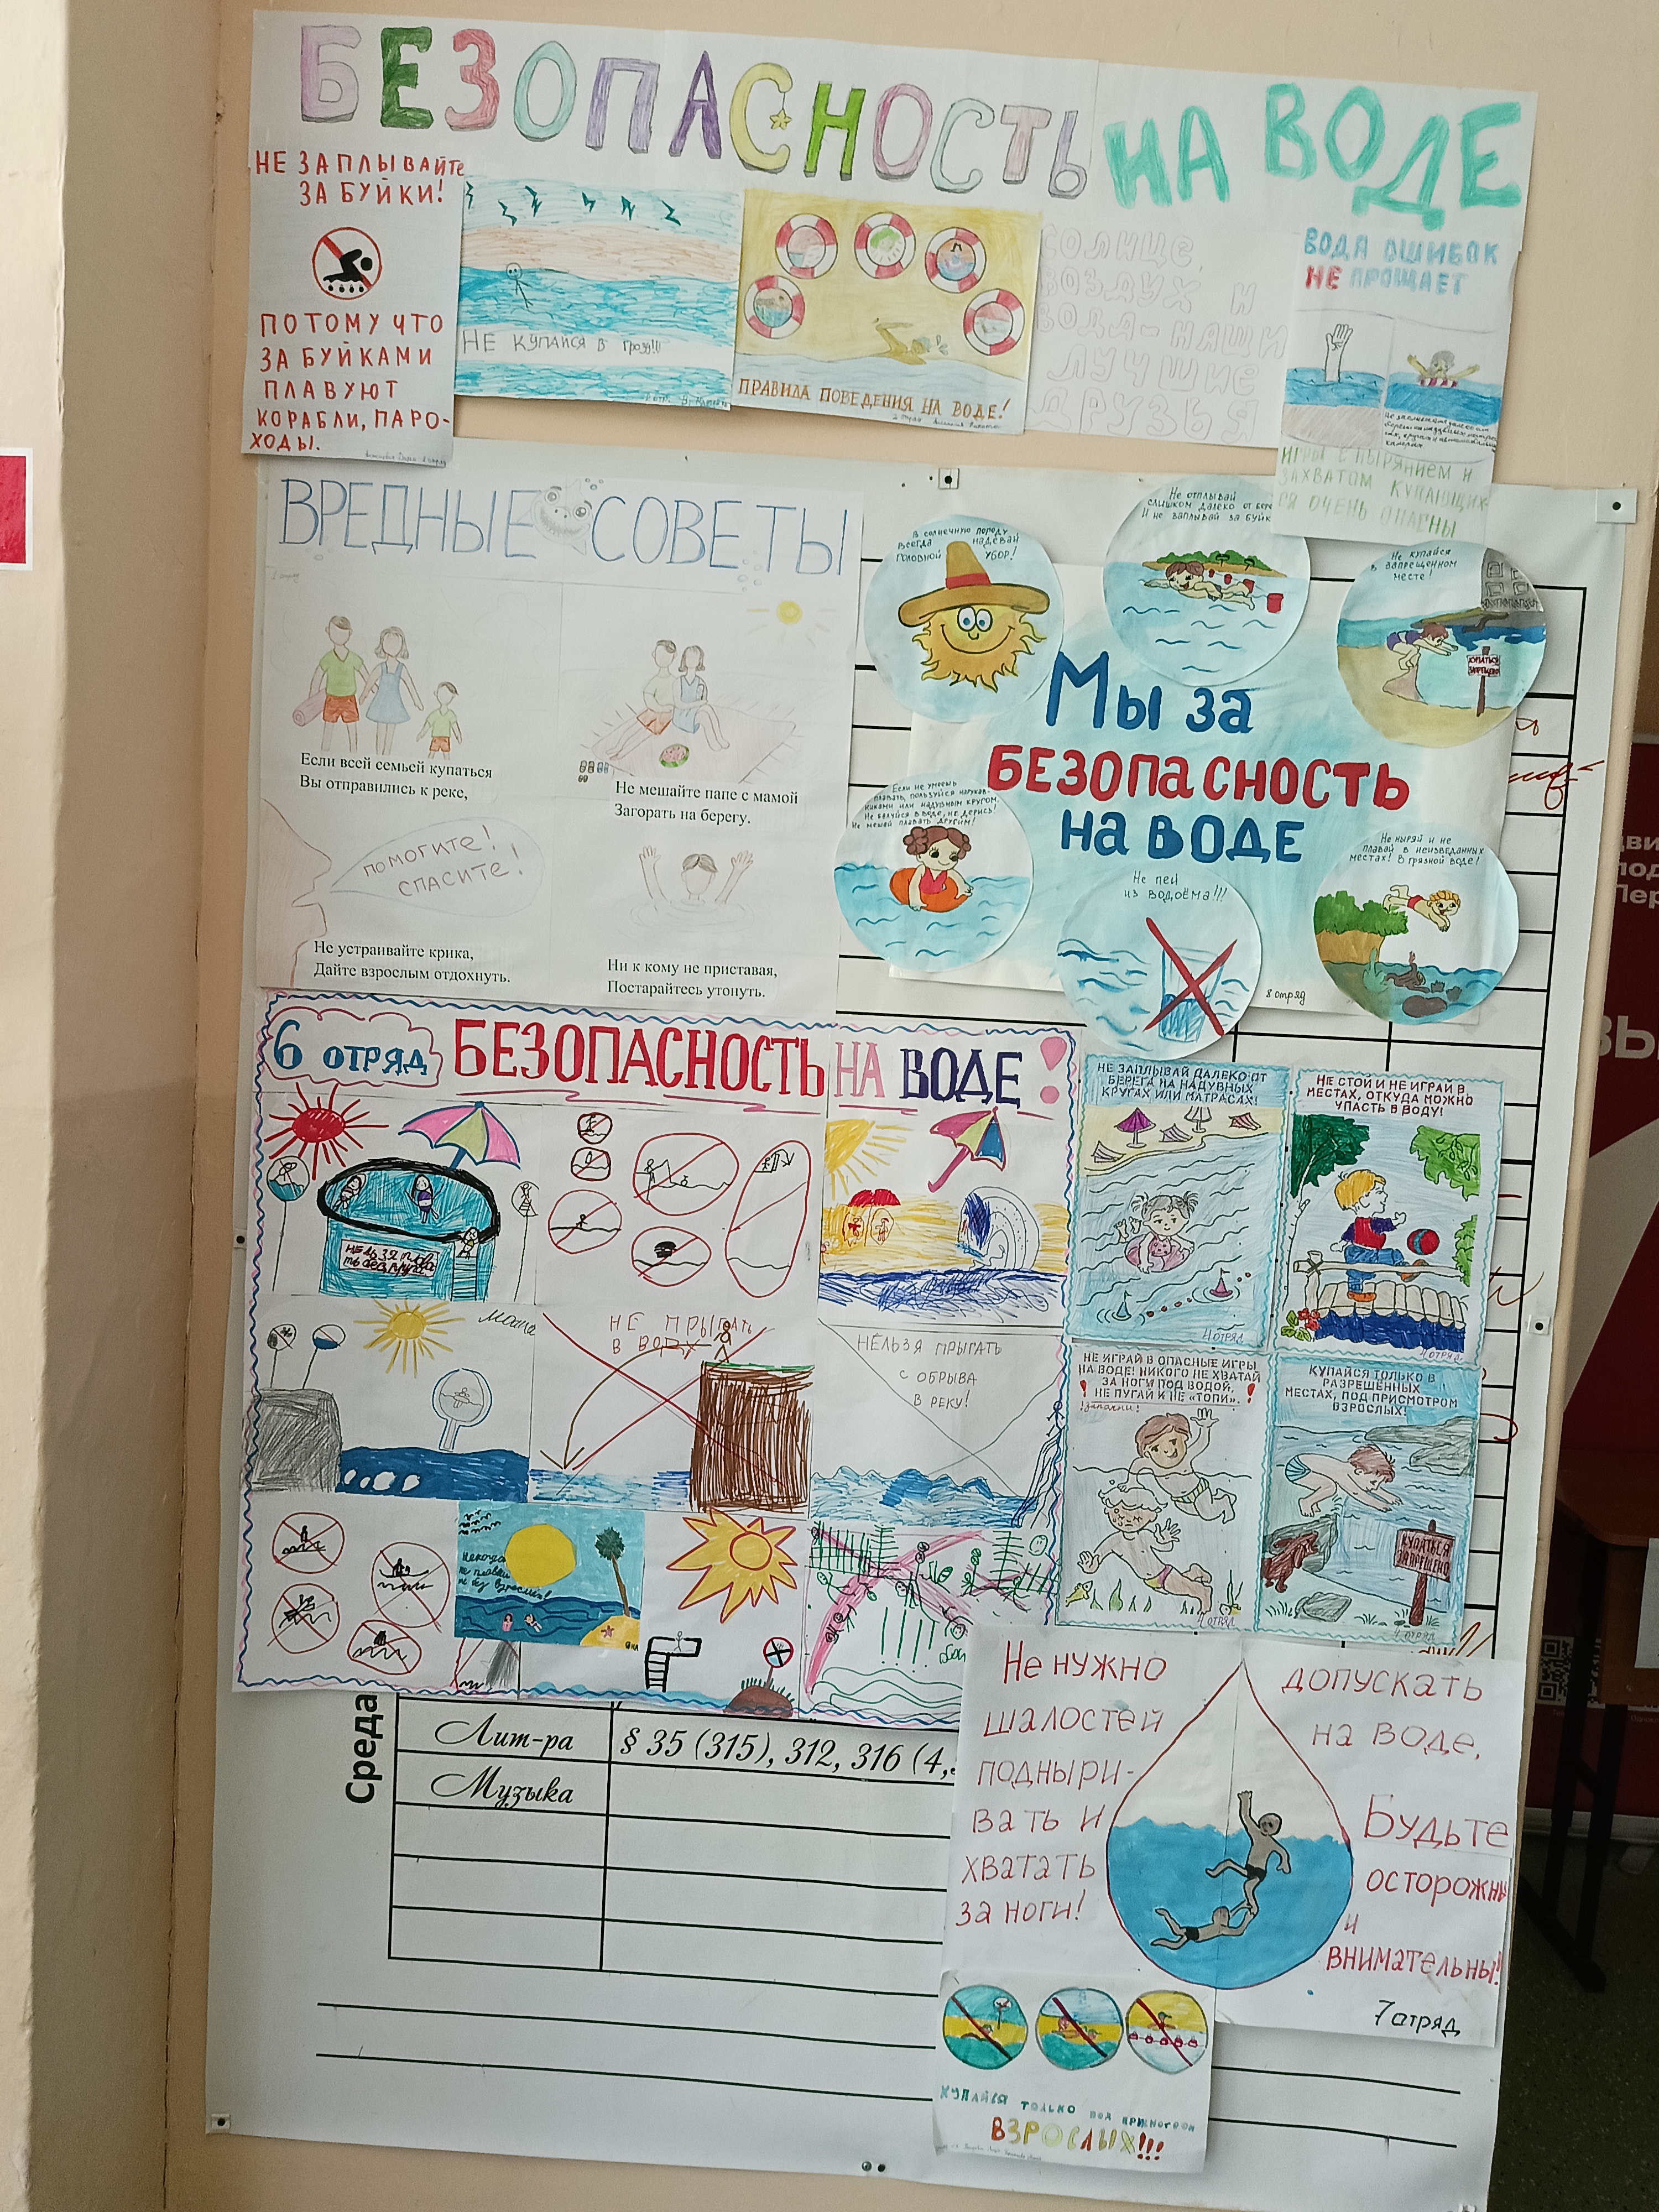 БЕЗОПАСНОСТЬ НА ВОДЕ
НЕ ЗАПЛЫВАЙТЕ
ЗА БУЙКИ!
ПОТОМУ ЧТО
ЗА БУЙКАМИ
ПЛАВУЮТ
КОРАБЛИ, ПАРО-
ХОДЫ.
НЕ КУПАЙСЯ В ГРОЗУ!!!
ПРАВИЛА ПОВЕДЕНИЯ НА ВОДЕ!
СОЛНЦЕ,
ВОЗДУХ И
ВОДА-НАШИ
ЛУЧШИЕ
ДРУЗЬЯ
ВОДА ОШИБОК
НЕ ПРОЩАЕТ
ИГРЫ С НЫРЯНИЕМ И
ЗАХВАТОМ КУПАЮЩИХ-
СЯ ОЧЕНЬ ОПАСНЫ
ВРЕДНЫЕ СОВЕТЫ
Если всей семьей купаться
Вы отправились к реке,
Не мешайте папе с мамой
Загорать на берегу.
ПОМОГИТЕ!
СПАСИТЕ!
Не устраивайте крика,
Дайте взрослым отдохнуть.
Ни к кому не приставая,
Постарайтесь утонуть.
В солнечную погоду
всегда надевай
головной убор!
Не отплывай
слишком далеко от
И не заплывай за
Не купайся
в запрещенном
месте!
КУПАТЬСЯ
ЗАПРЕЩЕНО
Мы за
БЕЗОПАСНОСТЬ
на ВОДЕ
Если не умеешь
плавать, пользуйся нарукав-
никами или надувным кругом.
Не балуйся в воде, не дерись!
Не мешай плавать другим!
Не пей
из водоёма!!!
Не ныряй и не
плавай в неизведанных
местах! В грязной воде!
8 отряд
6 ОТРЯД БЕЗОПАСНОСТЬ НА ВОДЕ!
НЕ ПРЫГАТЬ
В ВОДУ
НЕЛЬЗЯ ПРЫГАТЬ
С ОБРЫВА
В РЕКУ!
НЕ ЗАПЛЫВАЙ ДАЛЕКО ОТ
БЕРЕГА НА НАДУВНЫХ
КРУГАХ ИЛИ МАТРАСАХ!
4 ОТРЯД
НЕ СТОЙ И НЕ ИГРАЙ В
МЕСТАХ, ОТКУДА МОЖНО
УПАСТЬ В ВОДУ!
4 ОТРЯД
НЕ ИГРАЙ В ОПАСНЫЕ ИГРЫ
НА ВОДЕ! НИКОГО НЕ ХВАТАЙ
ЗА НОГИ ПОД ВОДОЙ,
НЕ ПУГАЙ И НЕ «ТОПИ».
4 ОТРЯД
КУПАЙСЯ ТОЛЬКО В
РАЗРЕШЁННЫХ
МЕСТАХ, ПОД ПРИСМОТРОМ
ВЗРОСЛЫХ!
КУПАТЬСЯ
ЗАПРЕЩЕНО
4 ОТРЯД
Среда
Лит-ра § 35 (315), 312, 316 (4,
Музыка
Не нужно
шалостей
допускать
на воде,
подныри-
вать и
хватать
за ноги!
Будьте
осторожны
и
внимательны!
7 отряд
КУПАЙСЯ ТОЛЬКО ПОД ПРИСМОТРОМ
ВЗРОСЛЫХ!!!